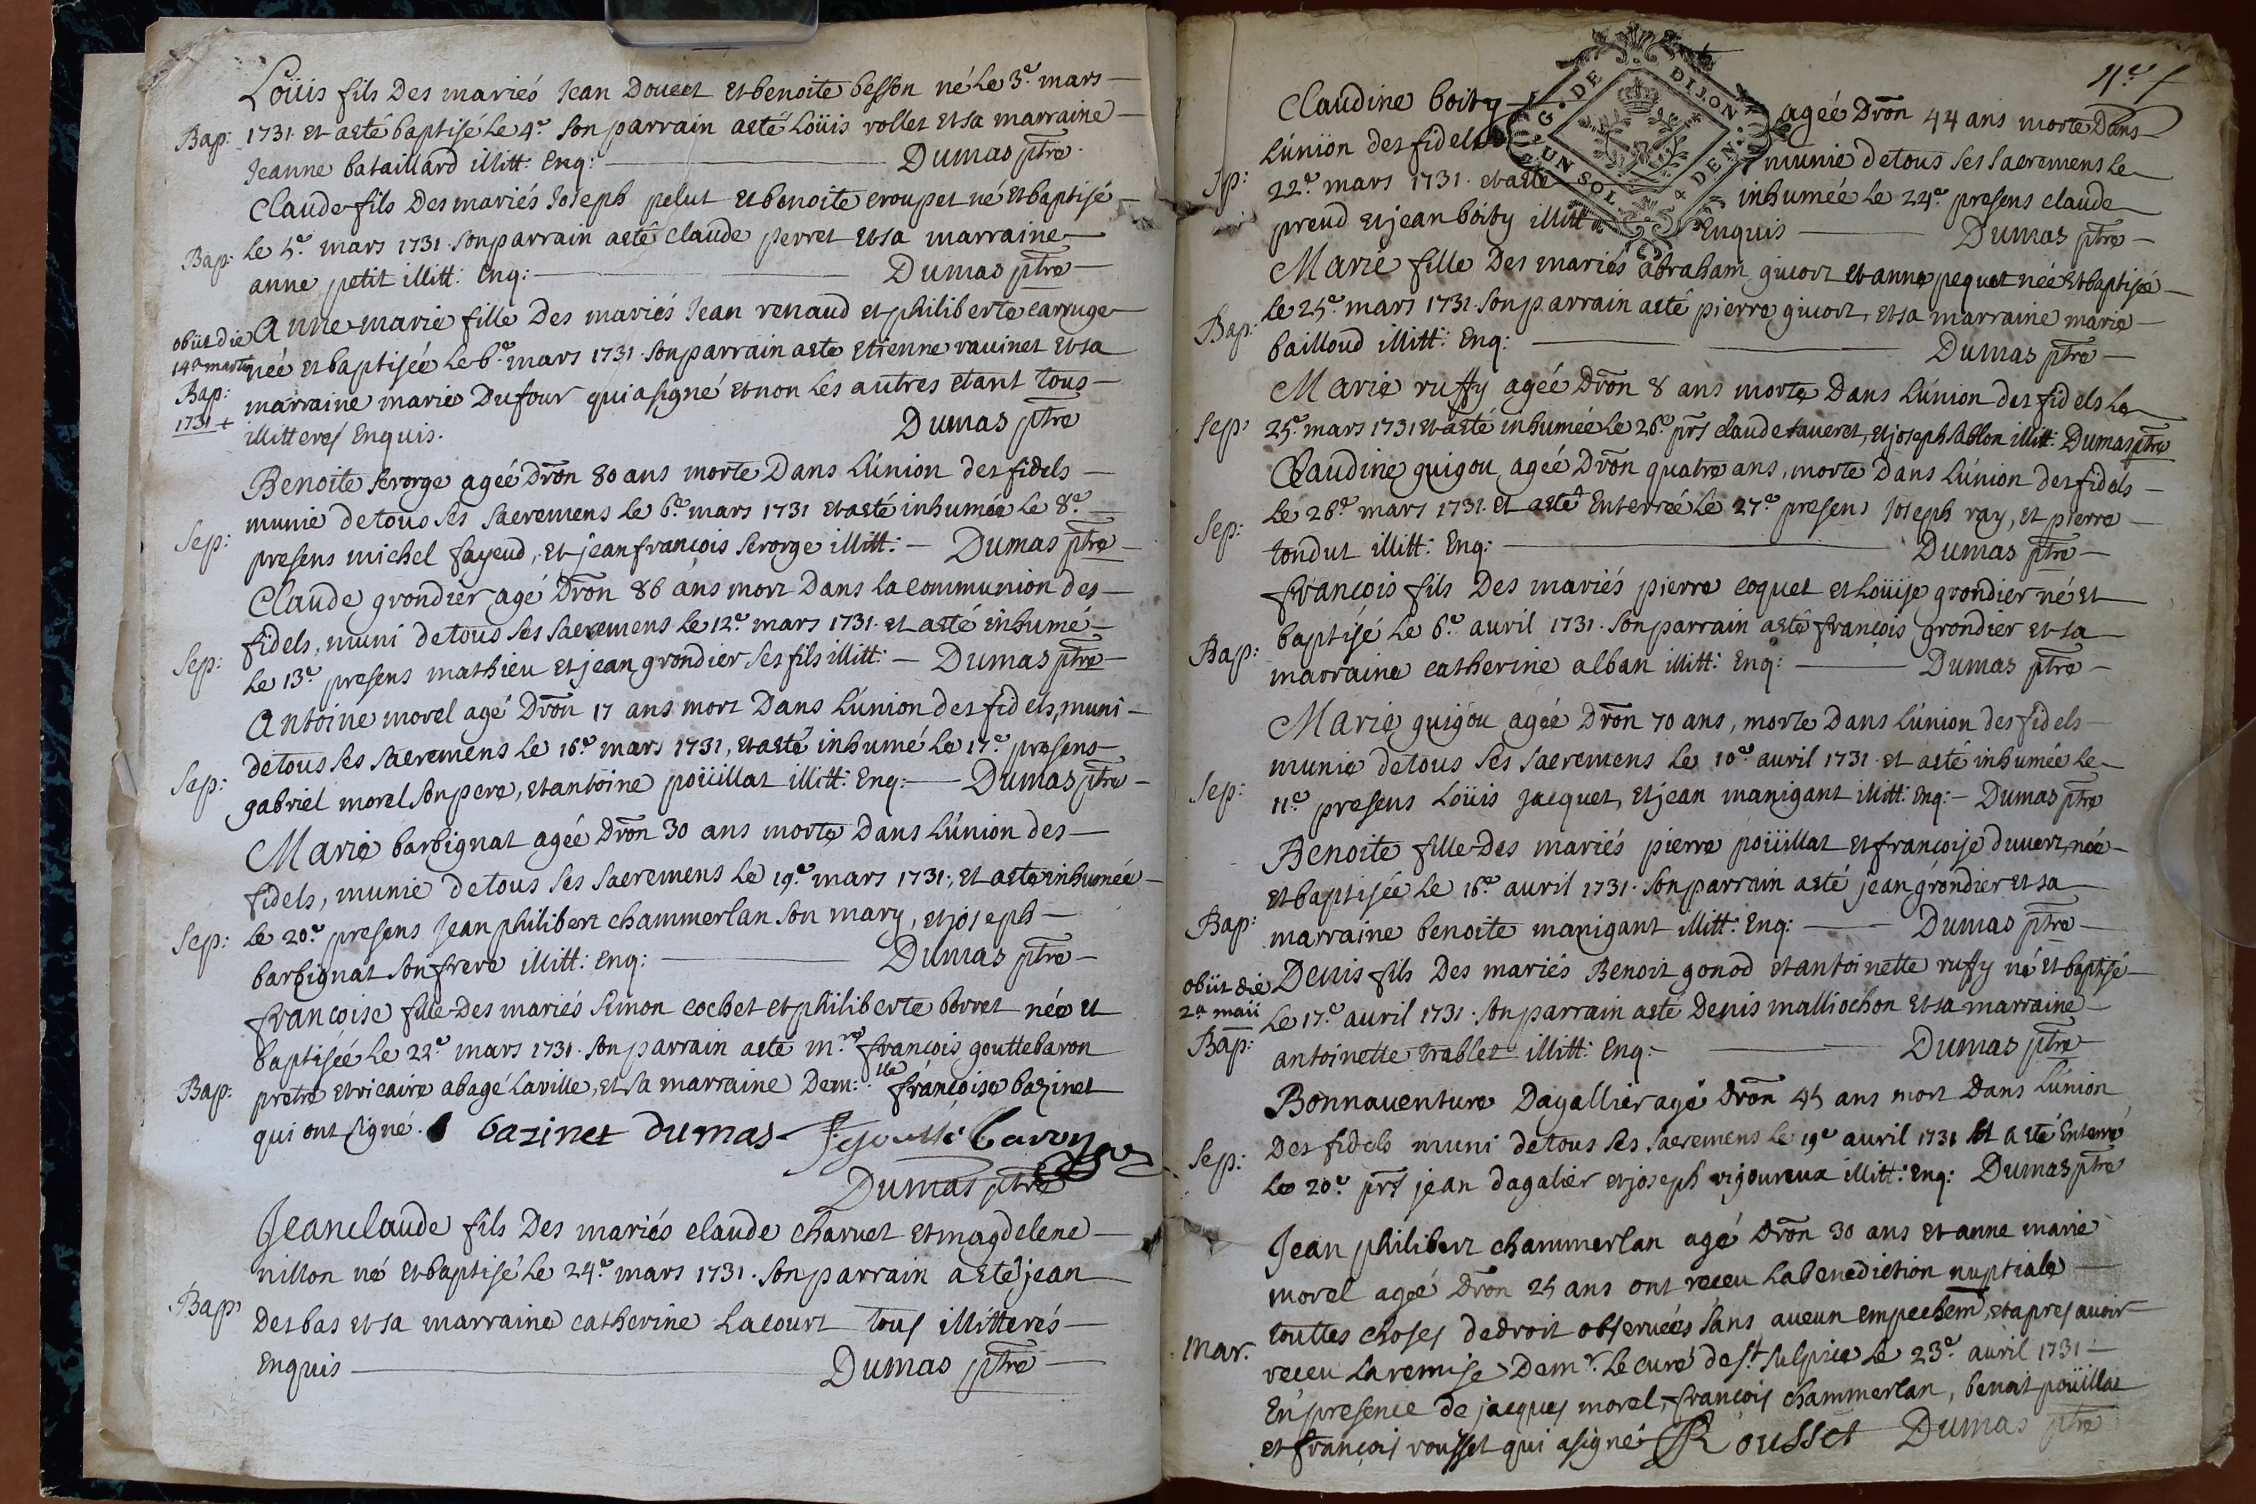 Loüis fils Des mariés Jean Douect Et benoite besson né Le 3.e mars
Bap: 1731. et a esté baptisé Le 4.e son parrain a esté Loüis rollet et sa marraine
Jeanne bataillard illitt: Enq: Dumas ptre.
Claude fils Des mariés Joseph pelut Et benoite croupet né Et baptisé
Bap: Le 5.e mars 1731. son parrain a esté claude perret Et sa marraine
anne petit illitt: Enq: Dumas ptre
obiit die Anne marie fille Des mariés Jean renaud et philiberte carruge
14.a martii née et baptisée Le 6.e mars 1731. son parrain a esté Etienne rauinet Et sa
Bap: marraine marie Dufour qui a signé et non Les autres étant tous
1731 + illitteres Enquis. Dumas ptre
Benoite frorge agée D'ron 80 ans morte Dans L'union des fidels
munie de tous ses sacremens Le 6.e mars 1731 et a esté inhumée Le 8.e
Sep: presens michel fayeud, et jean françois frorge illitt: Dumas ptre
Claude grondier agé D'ron 86 ans mort Dans la communion des
fidels, muni de tous ses sacremens Le 12.e mars 1731. et a esté inhumé
Sep: Le 13.e presens mathieu et jean grondier ses fils illitt: Dumas ptre
Antoine morel agé D'ron 17 ans mort Dans L'union des fidels, muni
de tous ses sacremens Le 16.e mars 1731, et a esté inhumé Le 17.e presens
Sep: gabriel morel son pere, et antoine poüillat illitt: Enq: Dumas ptre
Marie barbignat agée D'ron 30 ans morte Dans L'union des
fidels, munie de tous ses sacremens Le 19.e mars 1731, Et a esté inhumée
Sep: Le 20.e presens Jean philibert chammerlan son mary, et joseph
barbignat son frere illitt: Enq: Dumas ptre
françoise fille Des mariés simon cochet et philiberte borret née et
baptisée Le 22.e mars 1731. son parrain a esté m.re françois gouttebaron
Bap: pretre et vicaire a bagé La ville, et sa marraine Dem:lle françoise bazinet
qui ont signé. bazinet dumas f gouttebaron
Dumas ptre
Jean claude fils Des mariés claude charuet et magdelene
nillon né et baptisé Le 24.e mars 1731. son parrain a esté jean
Bap: Desbas et sa marraine catherine Lacourt tous illitterés
Enquis Dumas ptre
11.e f
G. DE DIJON
UN SOL 4 DEN.
Claudine boity agée D'ron 44 ans morte Dans
L'union des fidels munie de tous ses sacremens Le
Sp: 22.e mars 1731. et a esté inhumée Le 24.e presens claude
preud et jean boity illitt Enquis Dumas ptre
Marie fille Des mariés abraham giuort et anne pequet née Et baptisée
Bap: Le 25.e mars 1731. son parrain a esté pierre giuort, et sa marraine marie
bailloud illitt: Enq: Dumas ptre
Marie ruffy agée D'ron 8 ans morte Dans L'union des fidels Le
Sep: 25.e mars 1731 et a esté inhumée Le 26.e prs claude taueret, et joseph sablon illitt: Dumas ptre
Claudine guigou agée D'ron quatre ans, morte Dans L'union des fidels
Sep: Le 26.e mars 1731. et a esté Enterrée Le 27.e presens Joseph ray, et pierre
tondut illitt: Enq: Dumas ptre
françois fils Des mariés pierre coquet et Loüise grondier né Et
Bap: baptisé Le 6.e auril 1731. son parrain a esté françois grondier et sa
marraine catherine alban illitt: Enq: Dumas ptre
Marie guigou agée D'ron 70 ans, morte Dans L'union des fidels
munie de tous ses sacremens Le 10.e auril 1731. et a esté inhumée Le
Sep: 11.e presens Loüis jacquet, et jean manigant illitt: Enq: Dumas ptre
Benoite fille Des mariés pierre poüillat et françoise duuert, née
et baptisée Le 16.e auril 1731. son parrain a esté jean grondier et sa
Bap: marraine benoite manigant illitt: Enq: Dumas ptre
obiit die Denis fils Des mariés Benoit gonod et antoinette ruffy né et baptisé
2.a maii Le 17.e auril 1731. son parrain a esté Denis malliochon et sa marraine
Bap: antoinette trablet illitt: Enq: Dumas ptre
Bonnauenture Dagallier agé D'ron 45 ans mort Dans L'union
Sep: Des fidels muni de tous ses sacremens Le 19.e auril 1731 et a esté Enterré
Le 20.e prs jean dagalier et joseph vigoureux illitt: Enq: Dumas ptre
Jean philibert chammerlan agé D'ron 30 ans et anne marie
morel agée D'ron 25 ans ont receu La benediction nuptiale
touttes choses de droit obseruées sans aucun empechem, et apres auoir
Mar. receu La remise De m.r Le curé de s.t sulpice Le 23.e auril 1731
En presence de jacques morel, françois chammerlan, benoit poüillat
et françois rousset qui a signé Rousset Dumas ptre